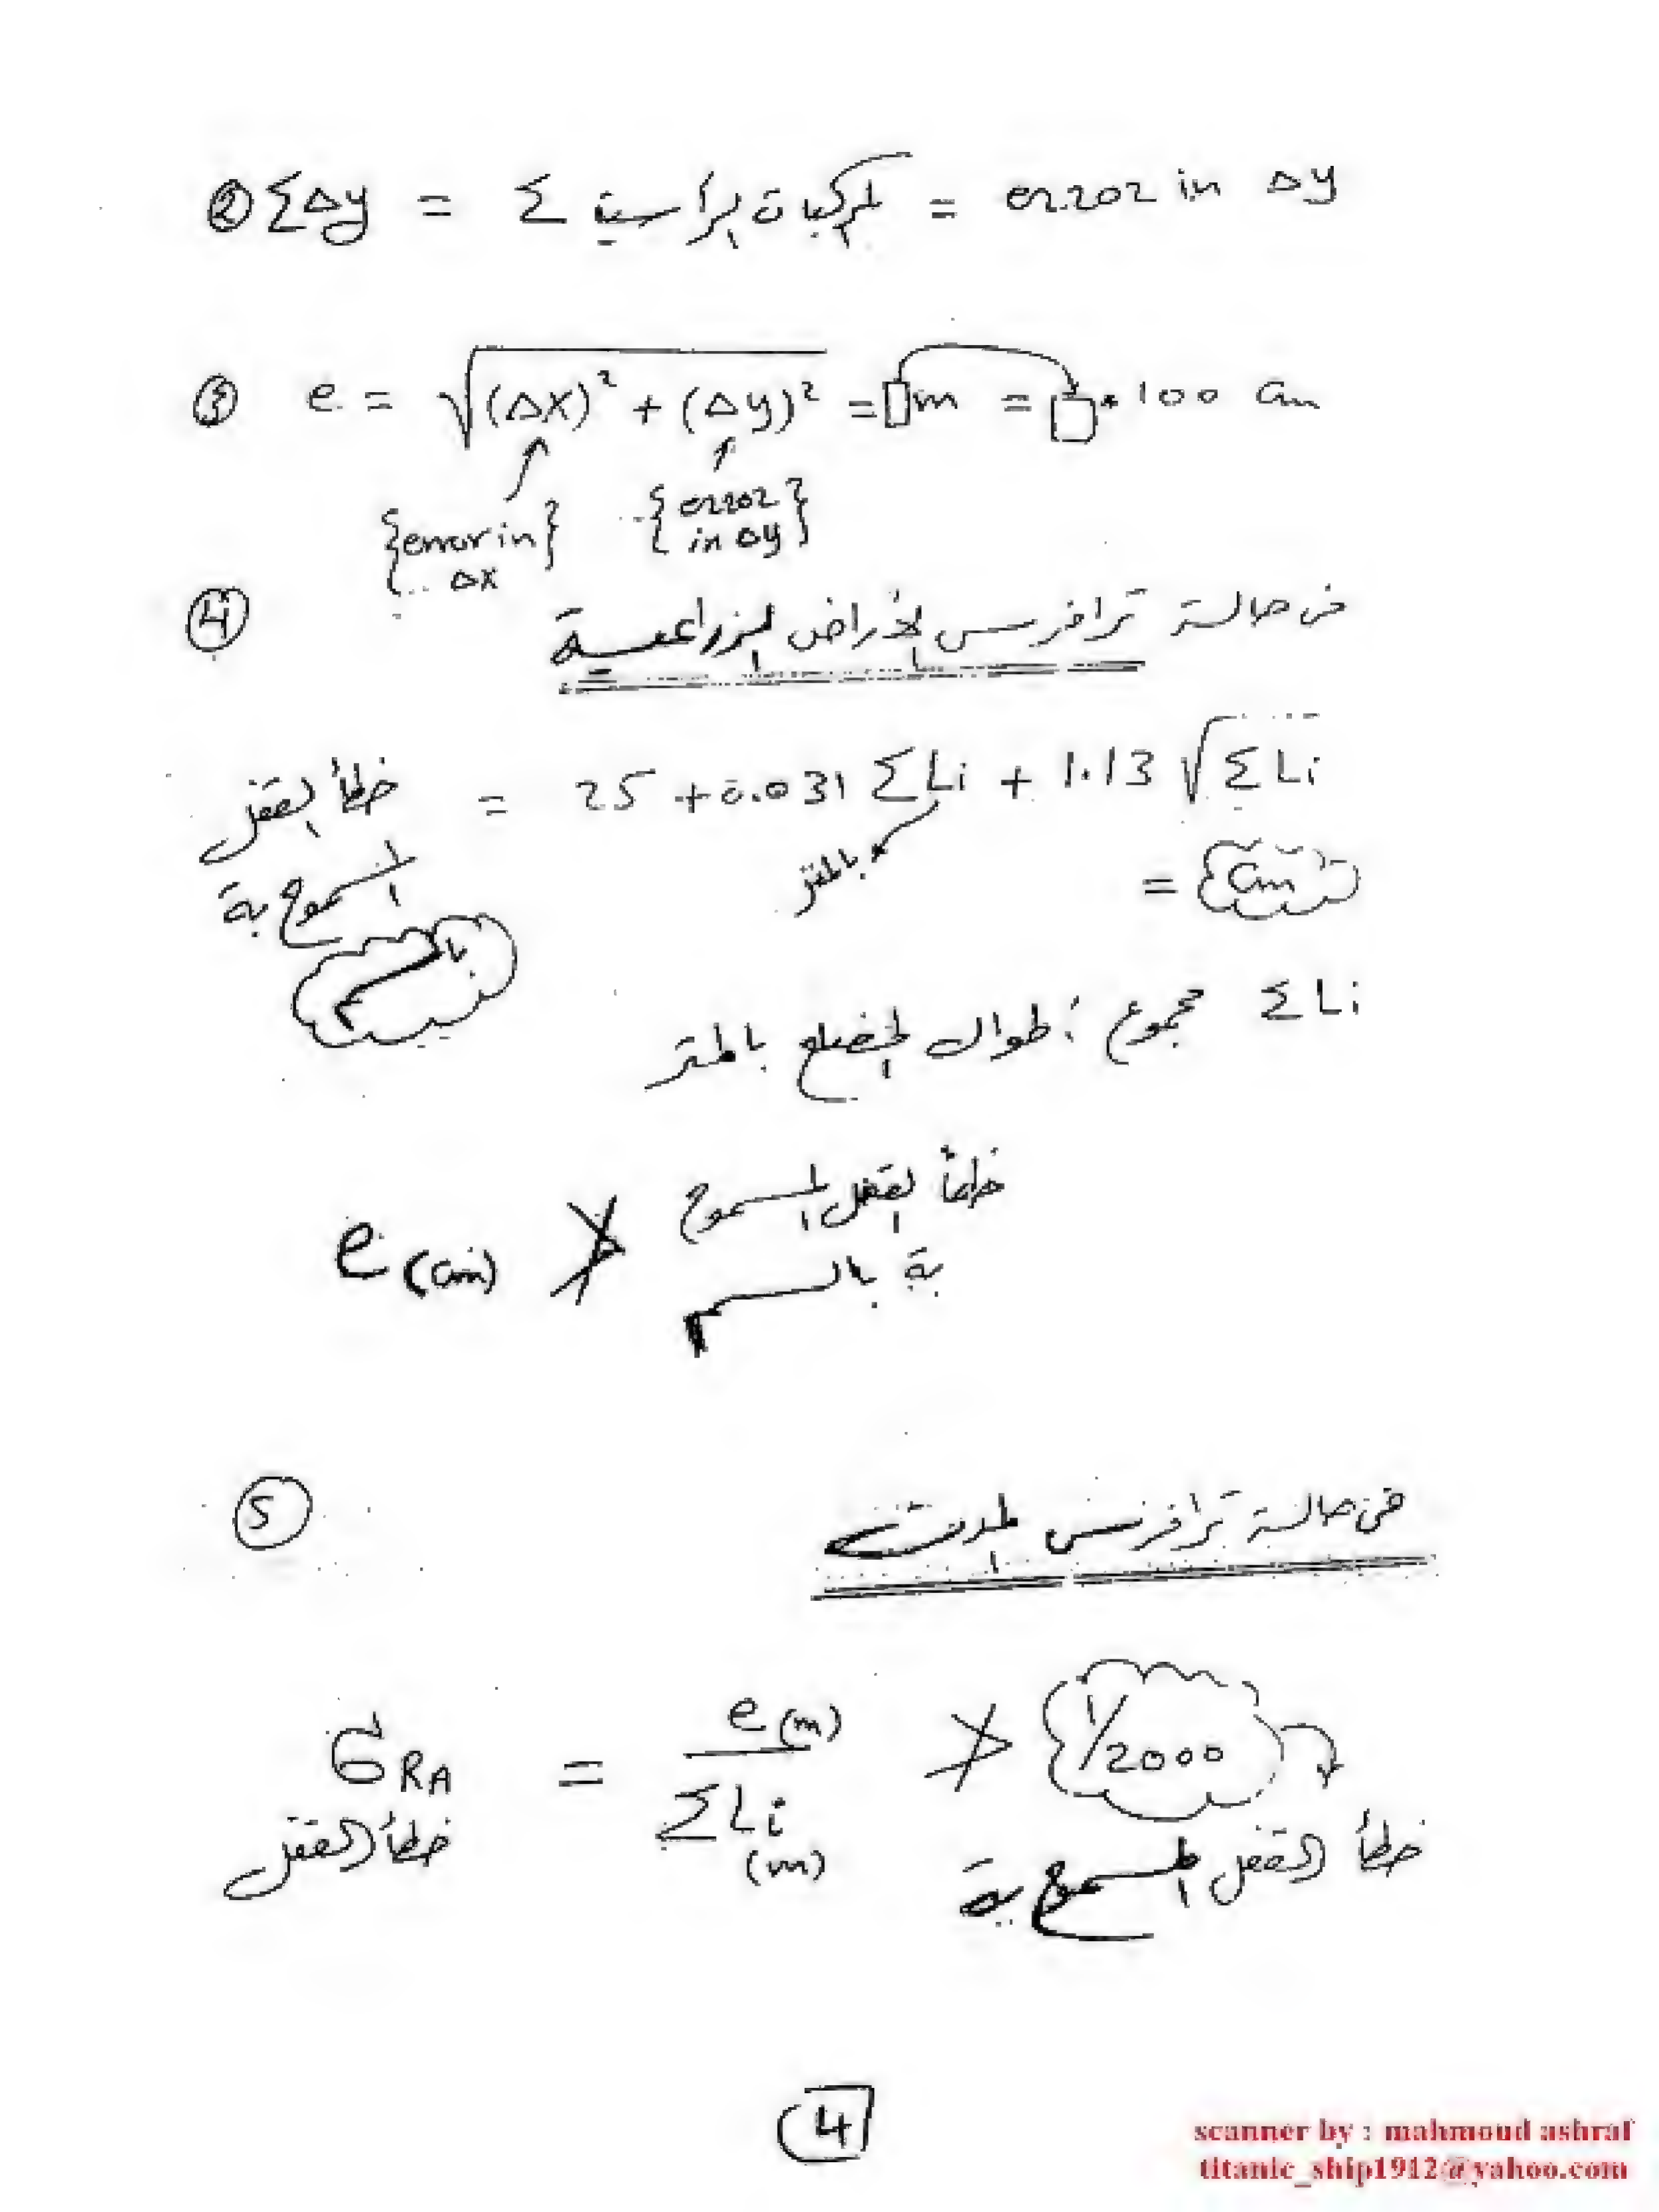 ② ΣΔy = Σ المركبات الرأسية = error in Δy
③ e = √(Δx)² + (Δy)² = □ m = □ * 100 cm
{error in Δx} {error in Δy}
④ فى حالة ترافرس الأراضى الزراعية
خطأ القفل المسموح بة بالسم = 25 + 0.031 ΣLi + 1.13 √ΣLi
بالمتر
= {cm}
ΣLi مجموع أطوال المضلع بالمتر
e (cm) ≯ خطأ القفل المسموح
بة بالسم
⑤ فى حالة ترافرس المدن
σRA = e(m) / ΣLi (m) ≯ 1/2000
خطأ القفل خطأ القفل المسموح بة
4
scanner by : mahmoud ashraf
titanic_ship1912@yahoo.com